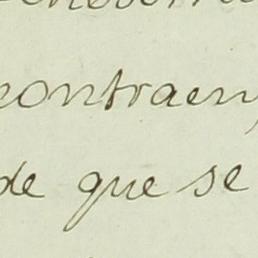 contraen,
de que se